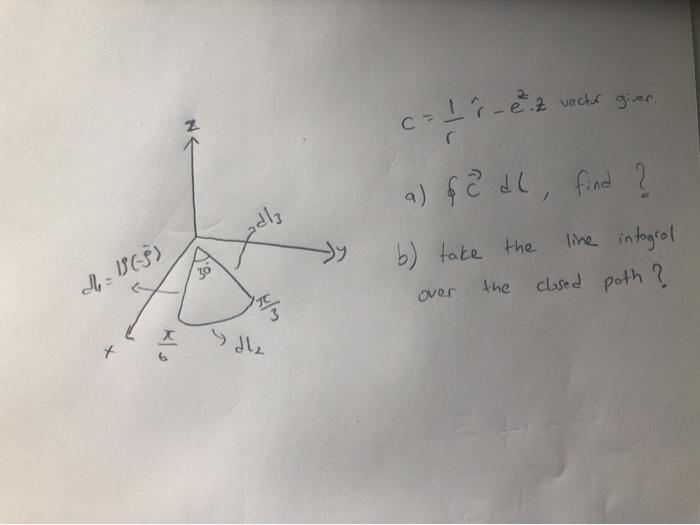 z
c = 1/r r̂ - e^z.z vector given.
a) ∮ c⃗ dl, find ?
b) take the line integral
over the closed path ?
dl3
y
30
π/3
dl2
π/6
x